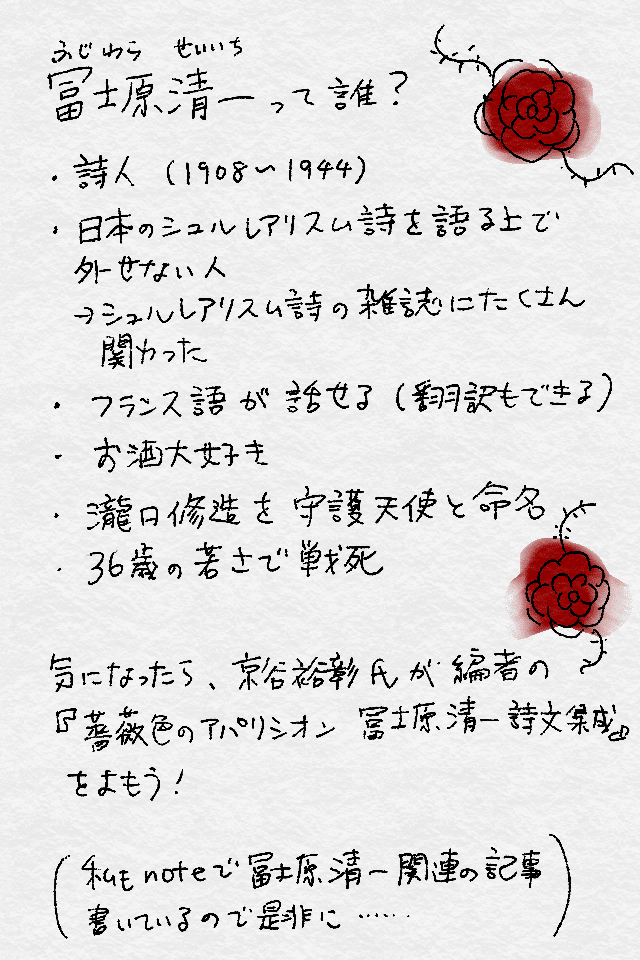 ふじわら せいいち
冨士原清一って誰？
・詩人（1908〜1944）
・日本のシュルレアリスム詩を語る上で
外せない人
→シュルレアリスム詩の雑誌にたくさん
関わった
・フランス語が話せる（翻訳もできる）
・お酒大好き
・瀧口修造を守護天使と命名
・36歳の若さで戦死
気になったら、京谷裕彰氏が編者の
『薔薇色のアパリシオン 冨士原清一詩文集成』
をよもう！
（私もnoteで冨士原清一関連の記事
書いているので是非に……）